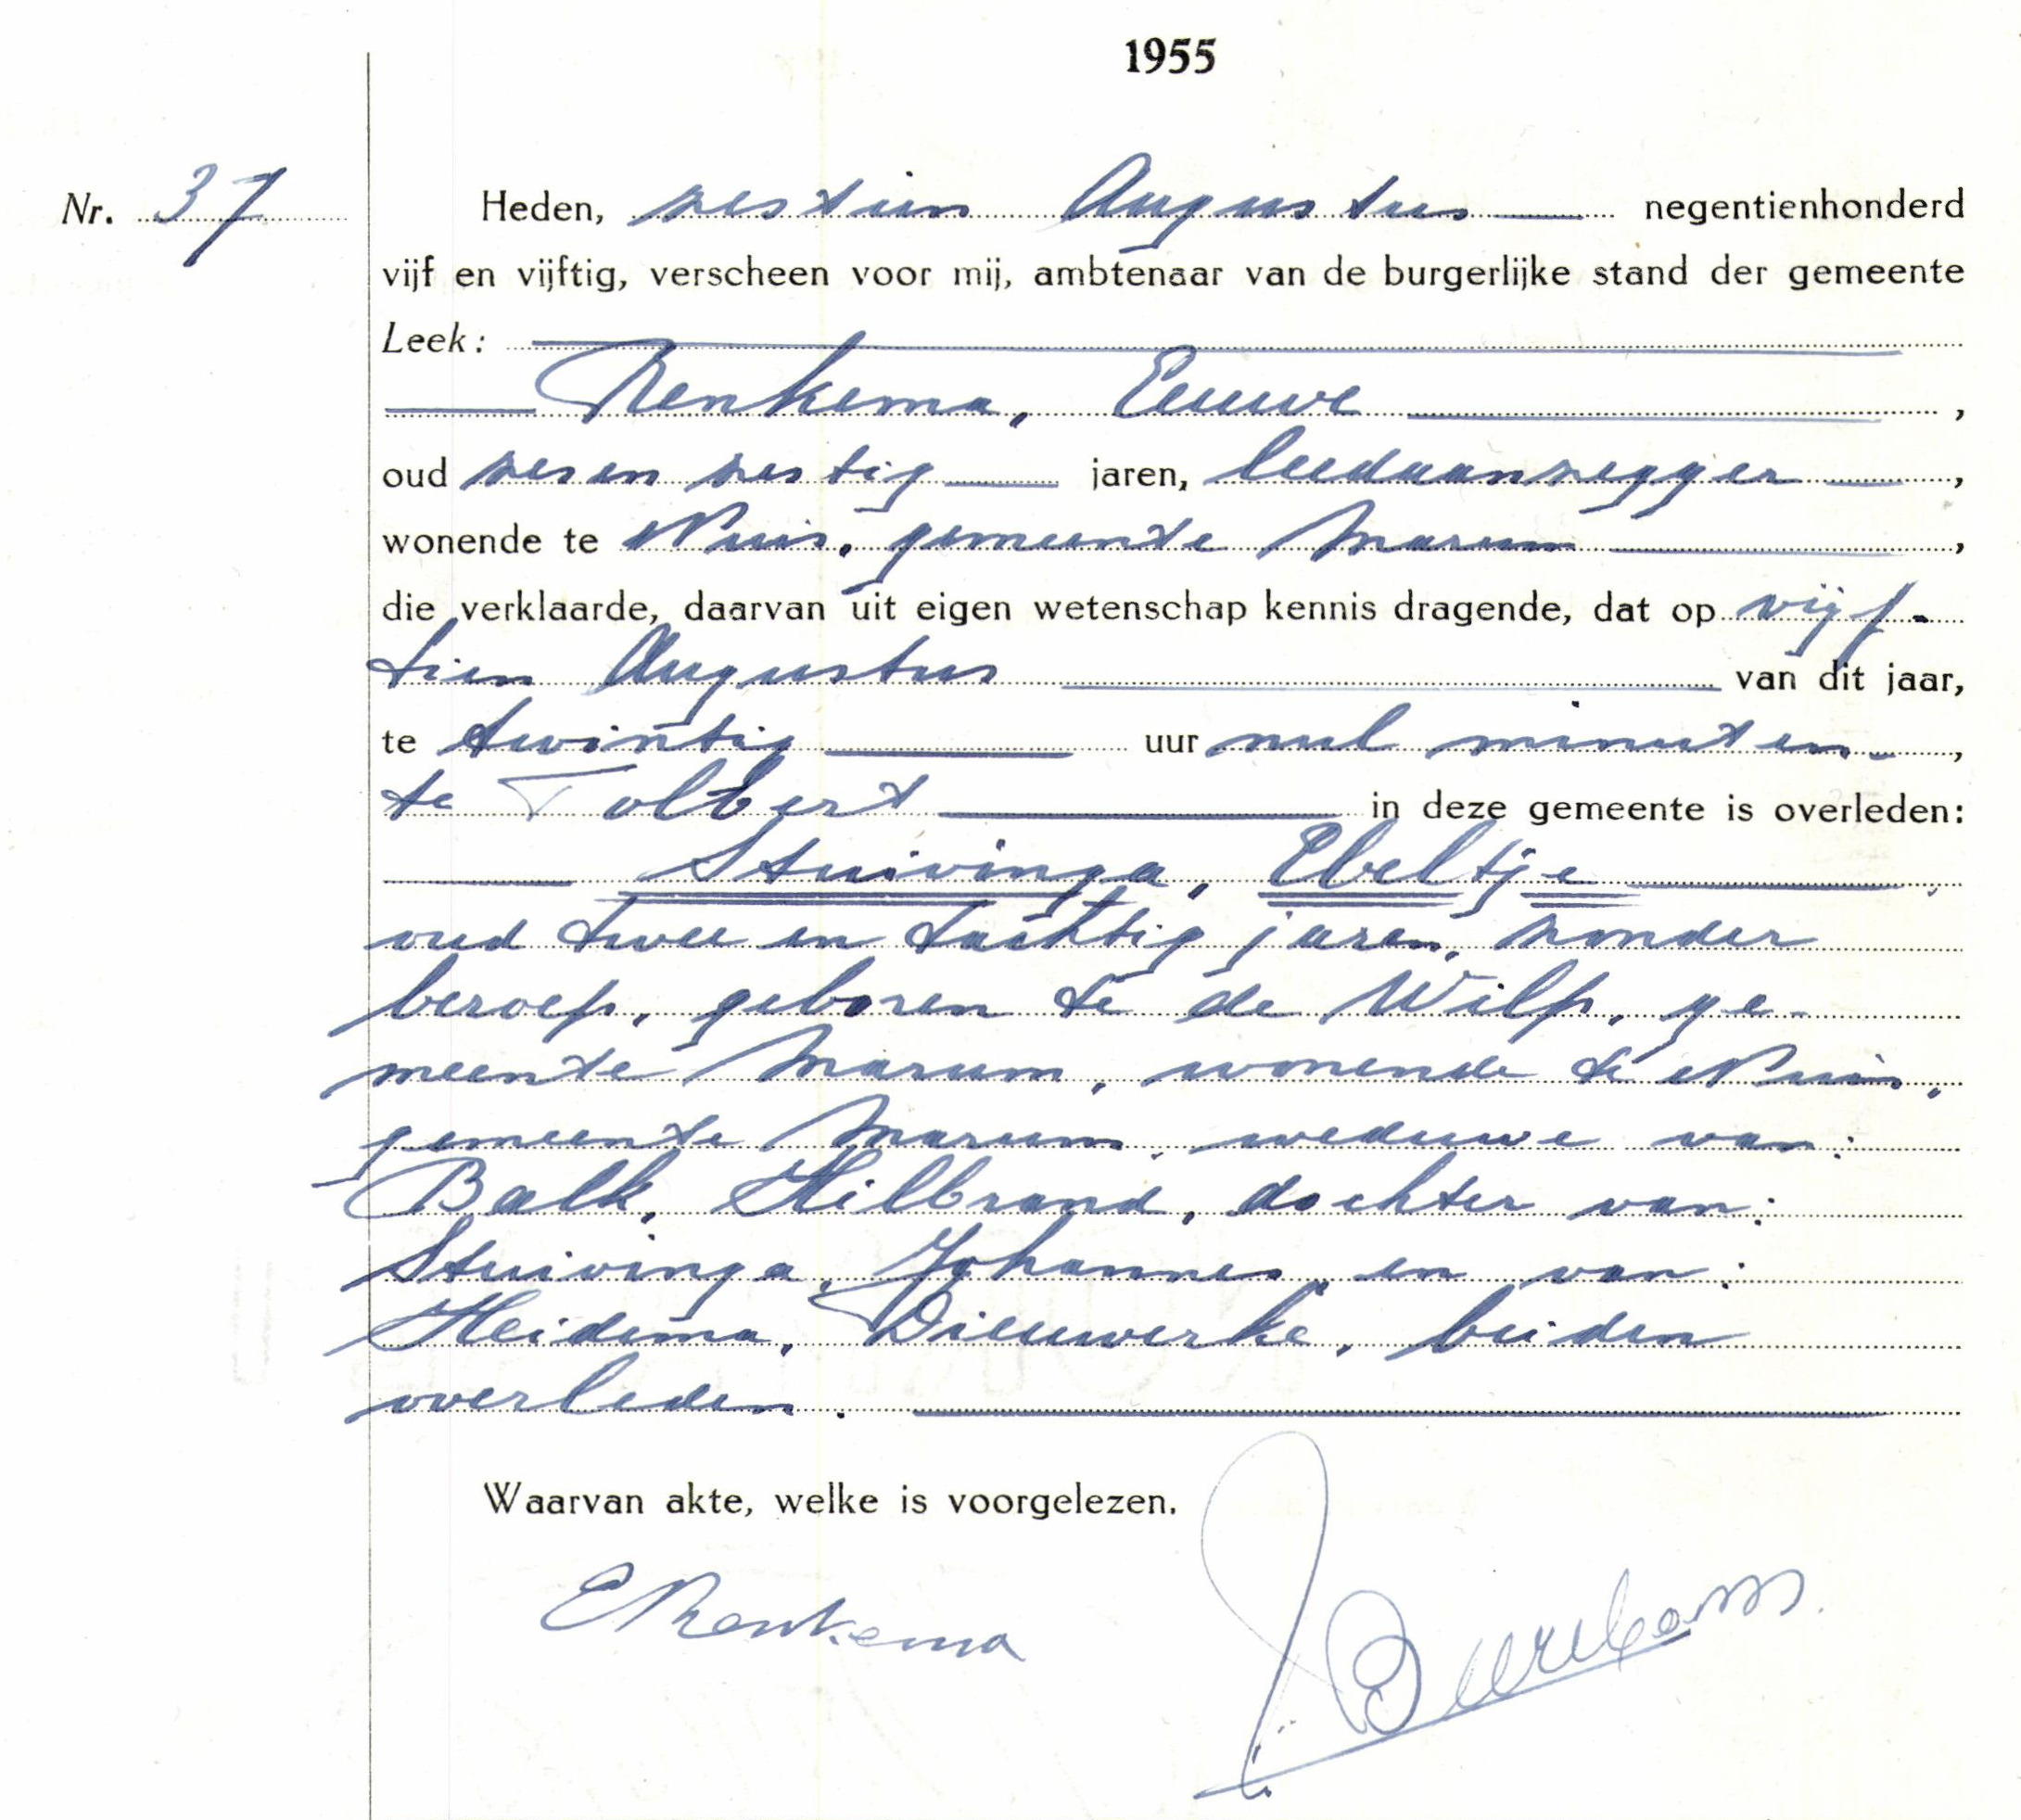 1955
Nr. 37
Heden, zestien Augustus negentienhonderd
vijf en vijftig, verscheen voor mij, ambtenaar van de burgerlijke stand der gemeente
Leek:
Renkema, Eeuwe,
oud zes en zestig jaren, leedaanzegger,
wonende te Nuis, gemeente Marum,
die verklaarde, daarvan uit eigen wetenschap kennis dragende, dat op vijf-
tien Augustus van dit jaar,
te twintig uur nul minuten,
te Tolbert in deze gemeente is overleden:
Stuivinga, Ebeltje,
oud twee en tachtig jaren, zonder
beroep, geboren te de Wilp, ge-
meente Marum, wonende te Nuis,
gemeente Marum, weduwe van:
Balk, Hilbrand, dochter van:
Stuivinga, Johannes, en van:
Heidema, Dieuwerke, beiden
overleden.
Waarvan akte, welke is voorgelezen.
ERenkema